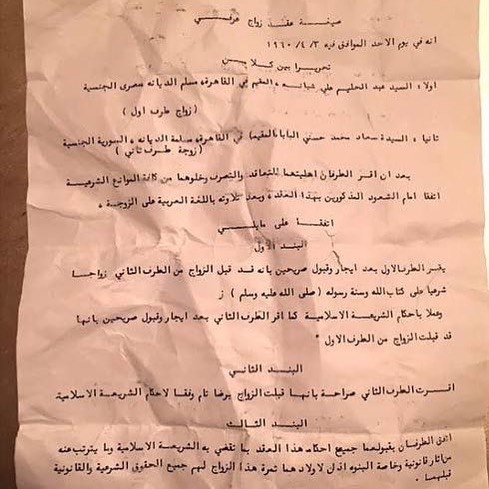 صيغة عقد زواج عرفي
انه في يوم الاحد الموافق فيه ٣ / ٤ / ١٩٦٠
تحريرا بين كلا من
اولا : السيد عبد الحليم علي شبانه ، المقيم في القاهرة، مسلم الديانه مصرى الجنسية
( زواج طرف اول )
ثانيا : السيدة سعاد محمد حسني البابا ( المقيم ) في القاهرة، مسلمة الديانه ، السورية الجنسية
( زوجة طرف ثاني )
بعد ان اقر الطرفان اهليتهما للتعاقد والتصرف وخلوهما من كافة الموانع الشرعية
اتفقا امام الشهود المذكورين بهذا العقد، وبعد تلاوته باللغة العربية على الزوجة ،
اتفقة على مايلي
البند الاول
يقر الطرف الاول بعد ايجار وقبول صريحين بانه قد قبل الزواج من الطرف الثاني زواجا
شرعيا على كتاب الله وسنة رسوله ( صلى الله عليه وسلم ) ز
وعملا باحكام الشريعة الاسلامية كما اقر الطرف الثاني بعد ايجار وقبول صريحين بانها
قد قبلت الزواج من الطرف الاول "
البند الثاني
اقرت الطرف الثاني صراحة بانها قبلت الزواج برضا تام وفقا لاحكام الشريعة الاسلامية
البند الثالث
اتفق الطرفان بقبولهما جميع احكام هذا العقد بما تقضي به الشريعة الاسلامية وما يترتب عنه
من اثار قانونية وخاصة البنوه اذ ان لاولاد هما ثمرة هذا الزواج لهم جميع الحقوق الشرعية والقانونية
قبلهما .